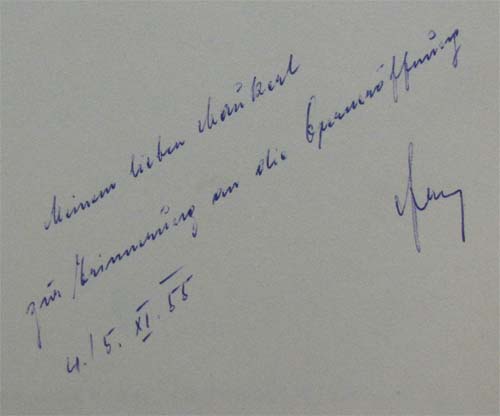 Meinem lieben
zur Erinnerung an die Operneröffnung
4./5. XI. 55